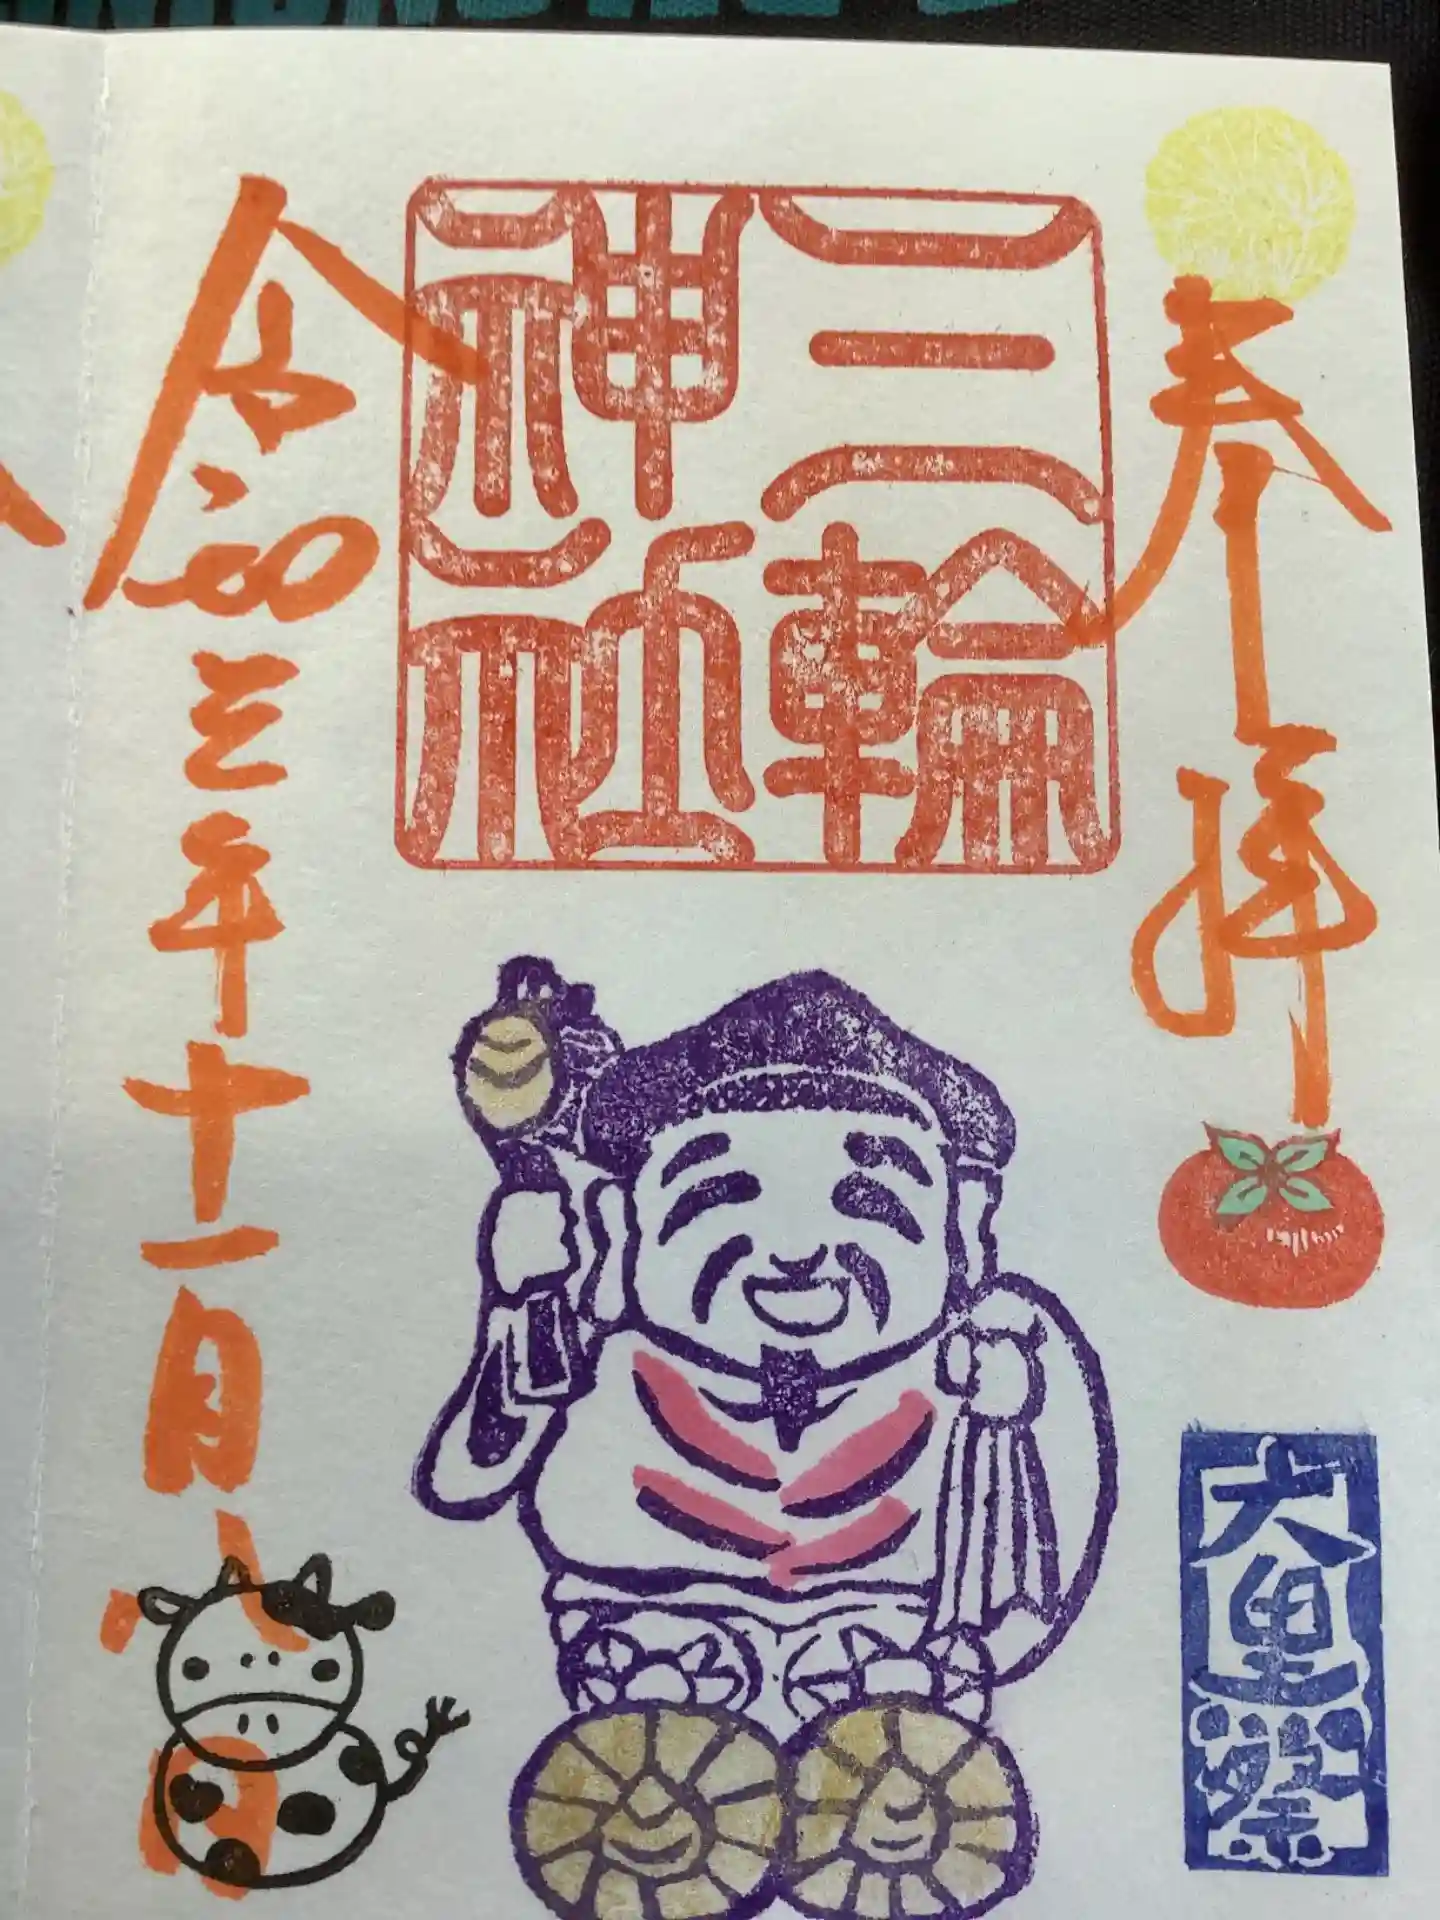 奉拝
三輪
神社
大黒祭
令和三年十一月八日